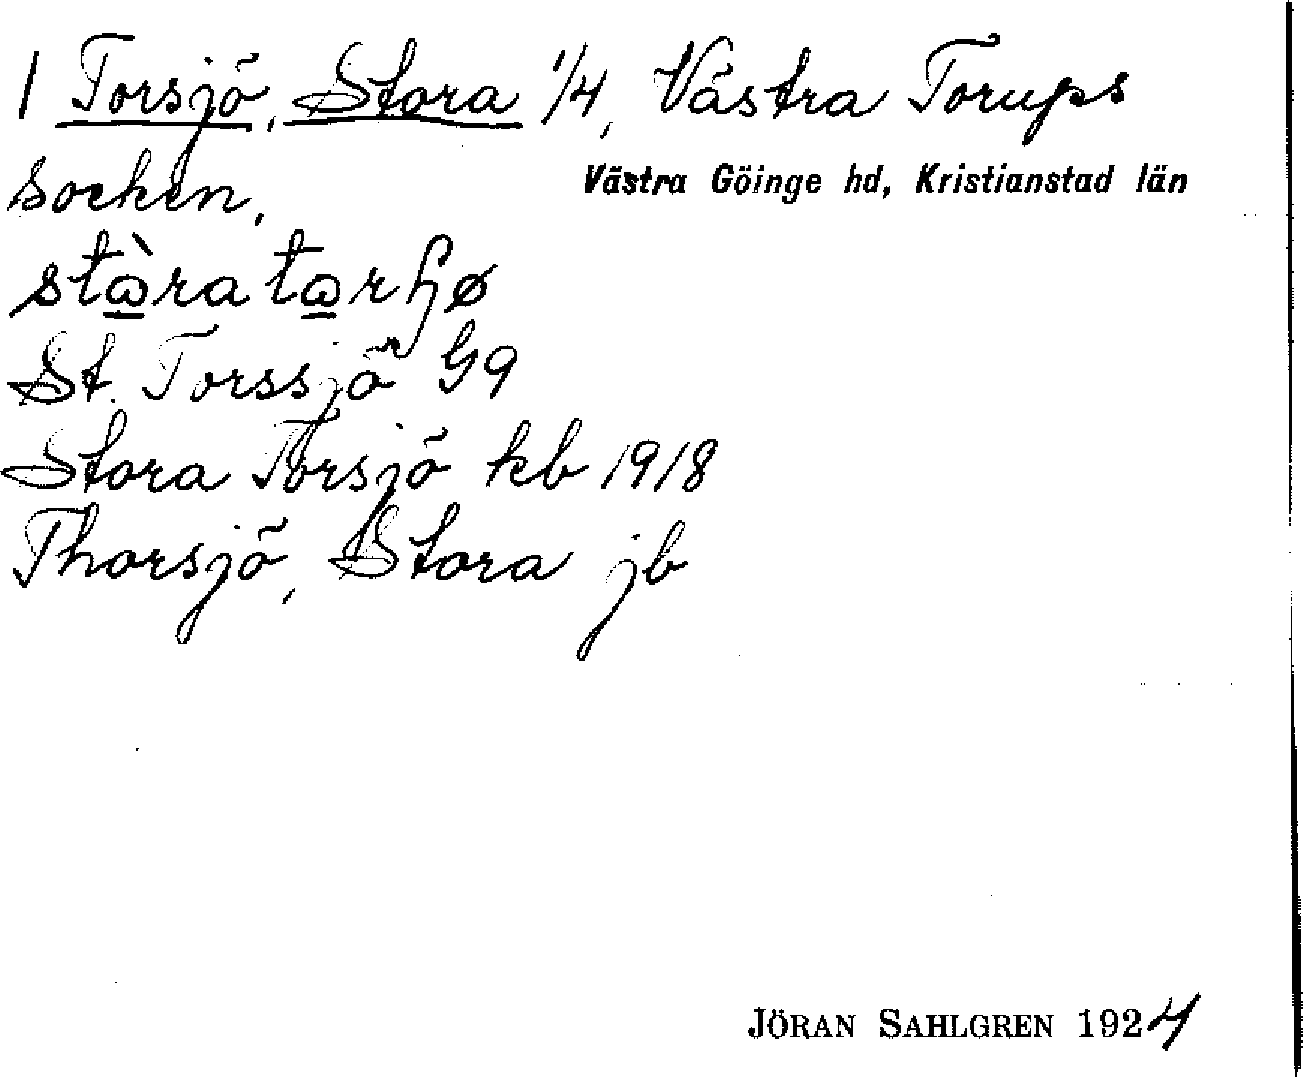 1 Torsjö, Stora 1/4, Västra Torups
socken,
Västra Göinge hd, Kristianstad län
St. Torssjö G9
Stora Torsjö kb 1918
Thorsjö, Stora jb
JÖRAN SAHLGREN 1924